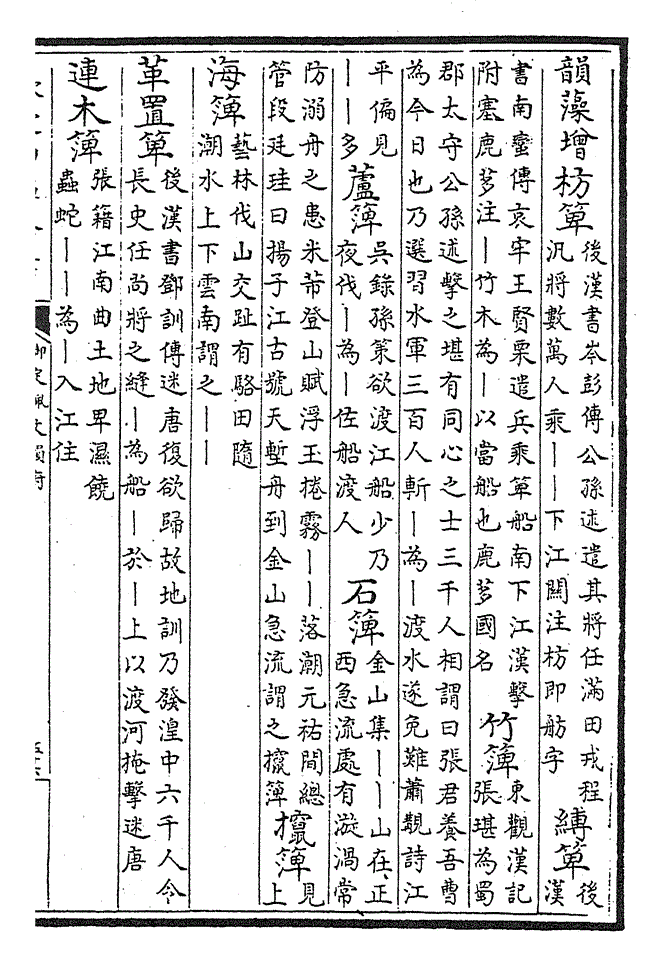 韻藻增 枋箄 後漢書岑彭傳公孫述遣其將任滿田戎程
汎將數萬人乘——下江關注枋即舫字 縛箄 後
漢
書南蠻傳哀牢王賢栗遣兵乘箄船南下江漢擊
附塞鹿茤注—竹木為—以當船也鹿茤國名 竹簰 東觀漢記
張堪為蜀
郡太守公孫述擊之堪有同心之士三千人相謂曰張君養吾曹
為今日也乃選習水軍三百人斬—為—渡水遂免難蕭覯詩江
平偏見
——多 蘆簰 吳錄孫策欲渡江船少乃
夜伐—為—佐船渡人 石簰 金山集——山在正
西急流處有漩渦常
防溺舟之患米芾登山賦浮玉捲霧——落潮元祐間總
管段廷珪曰揚子江古號天塹舟到金山急流謂之攛簰 攛簰 見
上
海簰 藝林伐山交趾有駱田隨
潮水上下雲南謂之——
革置箄 後漢書鄧訓傳迷唐復欲歸故地訓乃發湟中六千人令
長史任尚將之縫—為船—於—上以渡河掩擊迷唐
連木簰 張籍江南曲土地卑濕饒
蟲蛇——為—入江住
御定佩文韻府